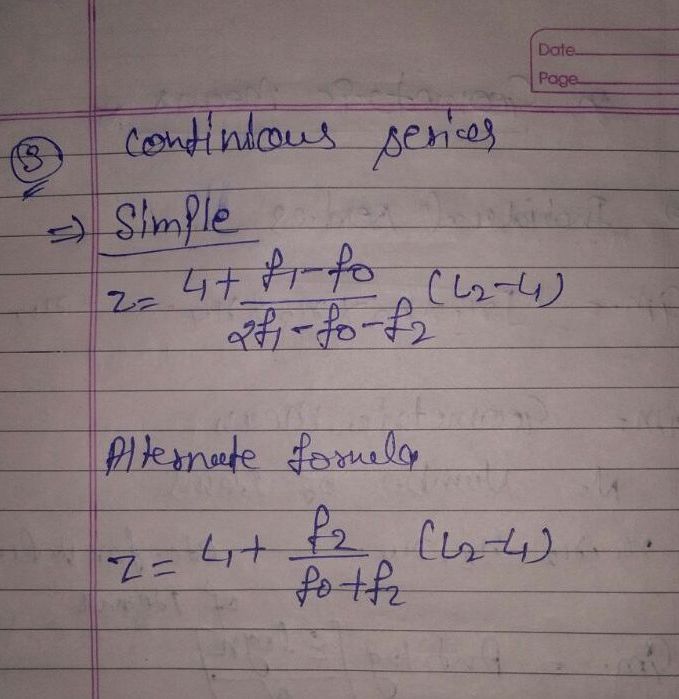 Date
Page
3
Continious series
⇒ Simple
z = L1 + f1 - f0 / 2f1 - f0 - f2 (L2 - L1)
Alternate formula
z = L1 + f2 / f0 + f2 (L2 - L1)